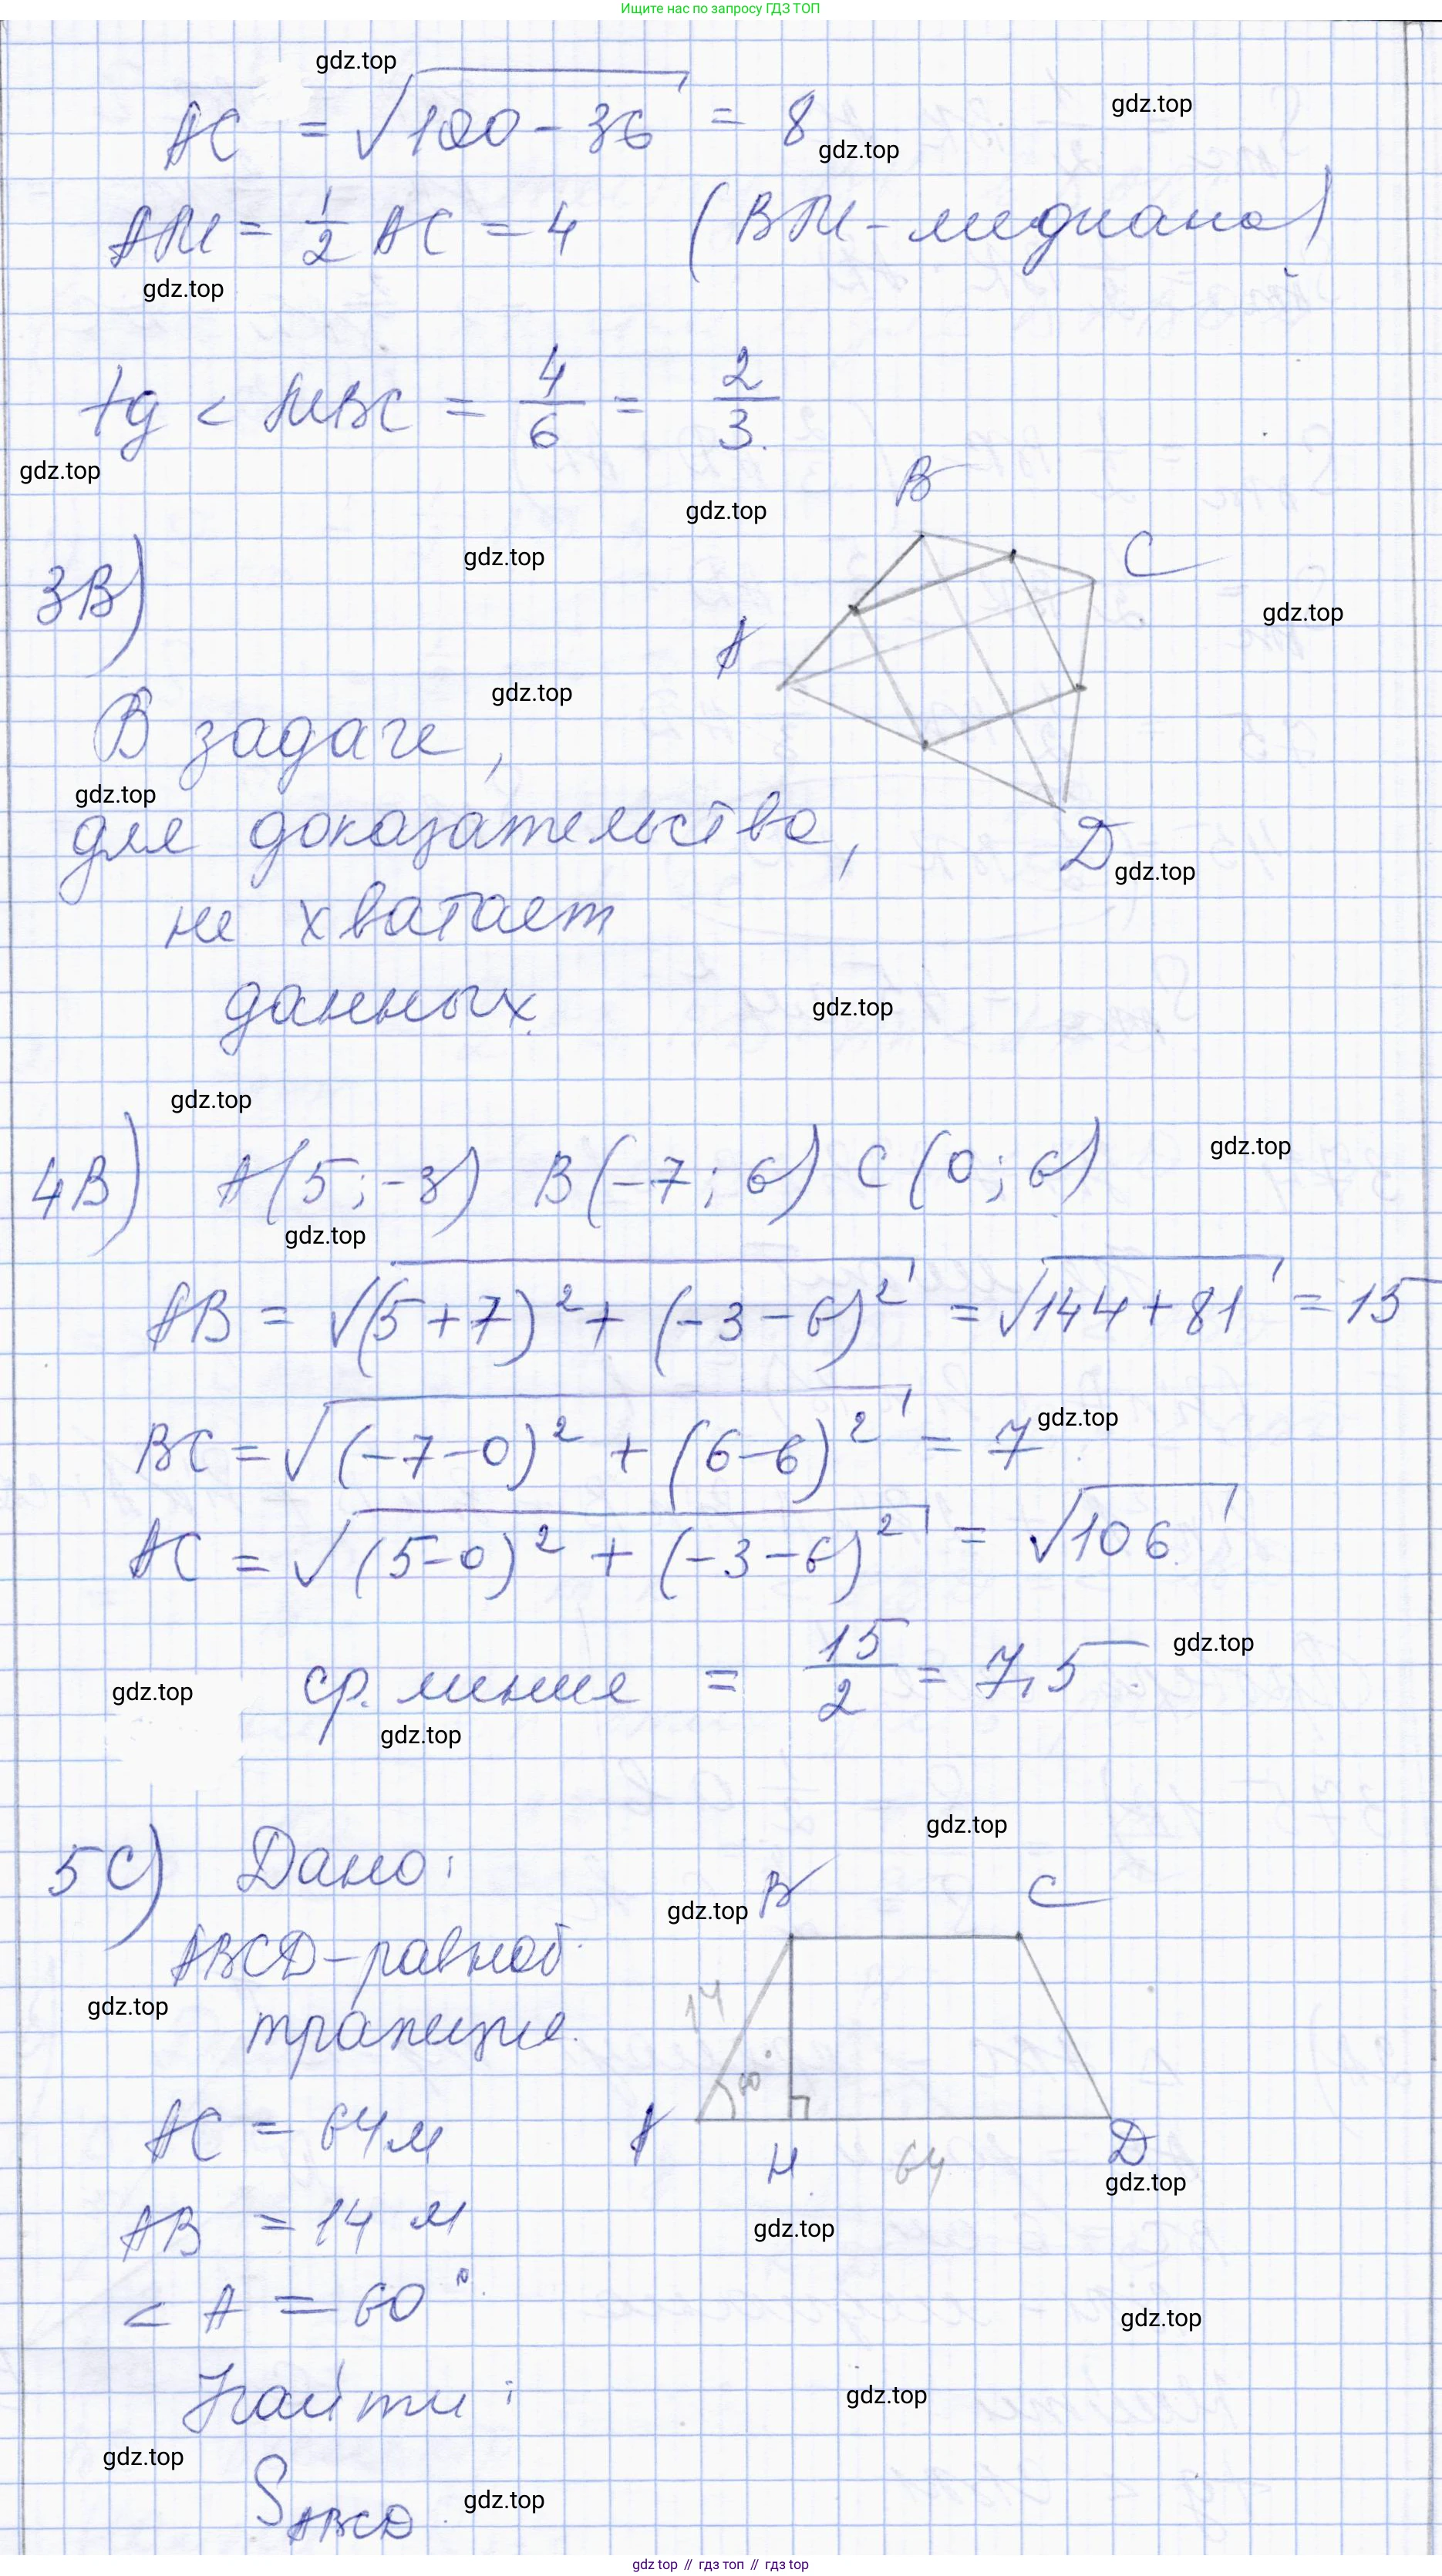 Ищите нас по запросу ГДЗ ТОП
gdz.top
gdz.top
AC = √(100 - 36) = 8
gdz.top
AM = 1/2 AC = 4 (BM - медиана)
gdz.top
tg < MBC = 4/6 = 2/3.
gdz.top
B
gdz.top
gdz.top
3B)
C
gdz.top
A
gdz.top
В задаче,
gdz.top
для доказательства,
D
gdz.top
не хватает
данных.
gdz.top
gdz.top
4B) A(5;-3) B(-7;6) C(0;6)
gdz.top
gdz.top
AB = √((5+7)² + (-3-6)²) = √(144+81) = 15
BC = √((-7-0)² + (6-6)²) = 7
gdz.top
AC = √((5-0)² + (-3-6)²) = √106.
ср. линия = 15/2 = 7,5
gdz.top
gdz.top
gdz.top
gdz.top
5C) Дано:
B C
gdz.top
ABCD-равноб.
14
gdz.top
трапеция.
60°
AC = 64м
A H 64 D
gdz.top
AB = 14 м
gdz.top
< A = 60°
gdz.top
Найти:
gdz.top
gdz.top
S ABCD
gdz.top
gdz top // гдз топ // гдз top